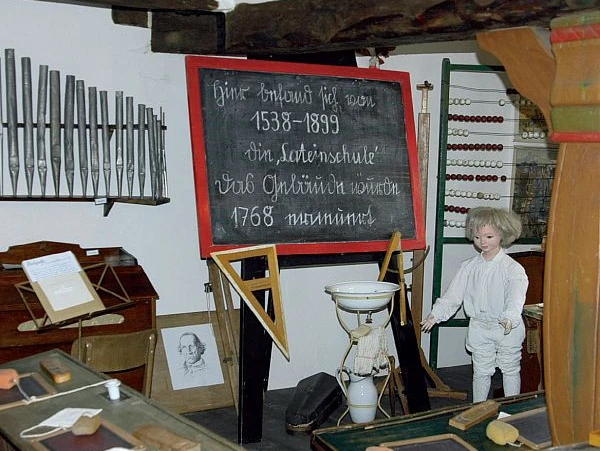 Hier befand sich von
1538-1899
die „Lateinschule“
Das Gebäude wurde
1768 erneuert